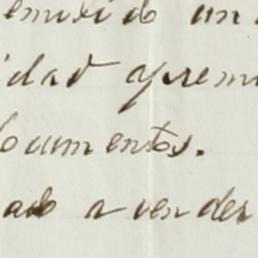 emitido un
idad apremi
ocumentos.
ado a vender